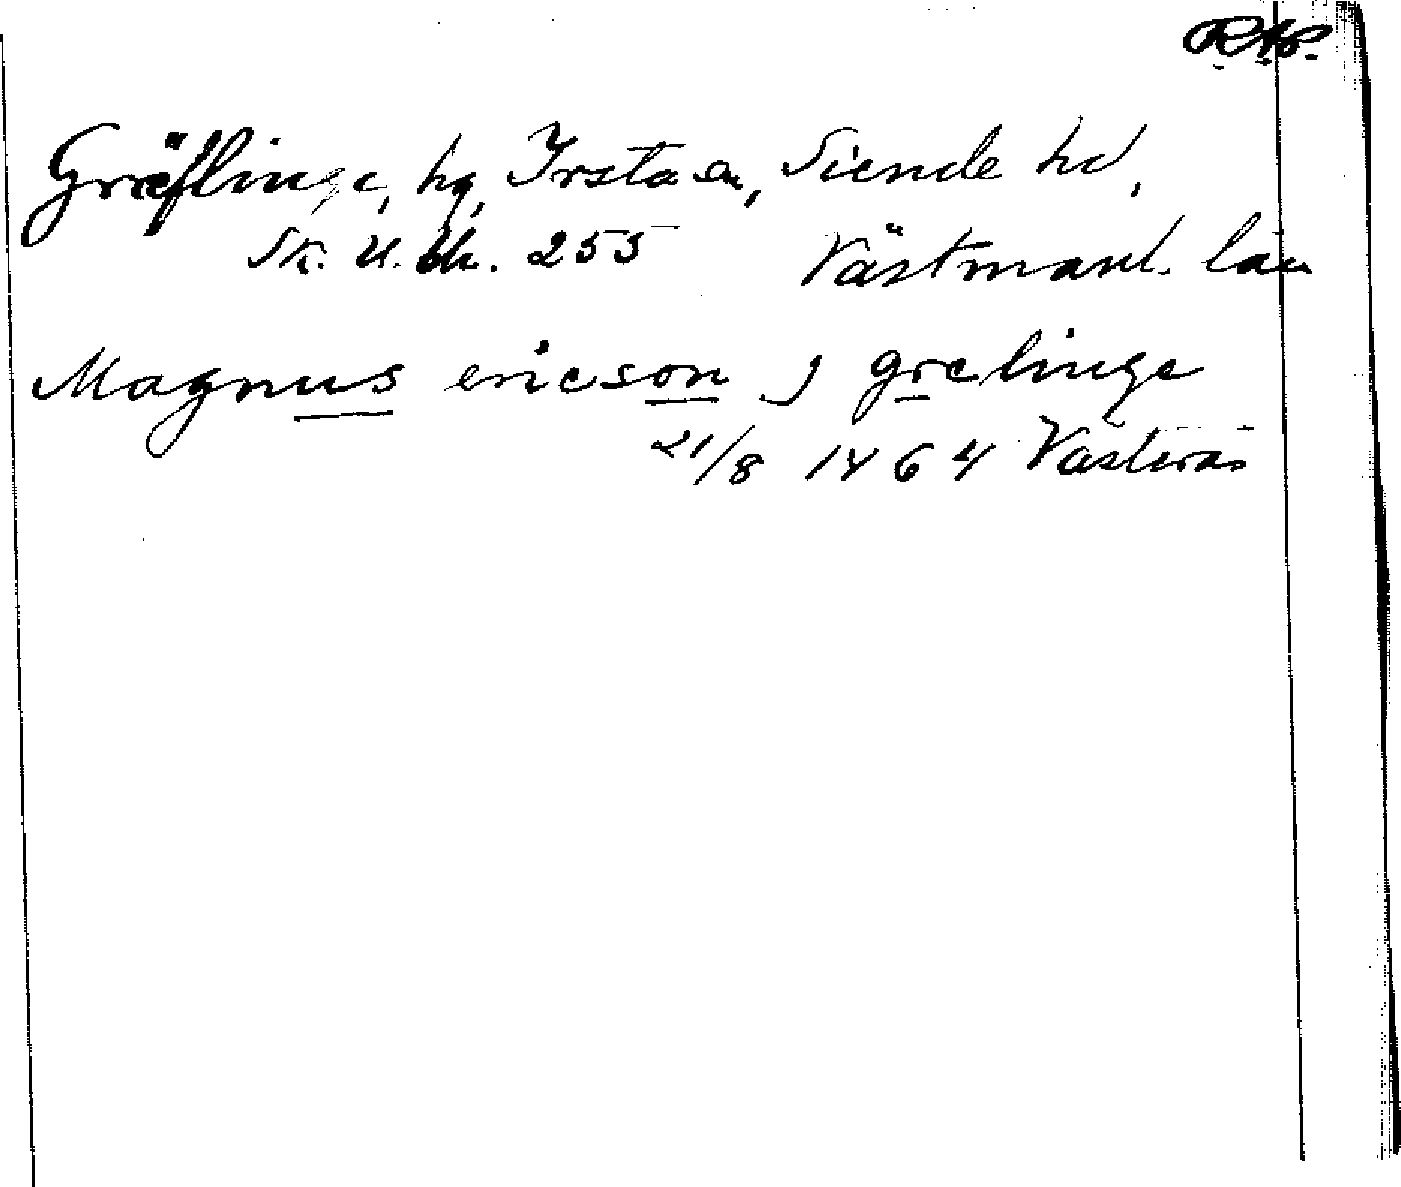 RAp.
Gräflinge, hg, Irsta sn, Siende hd,
Sk. U. bl. 255 Västmanl. län
Magnus ericson j grelinge
21/8 1464 Västerås